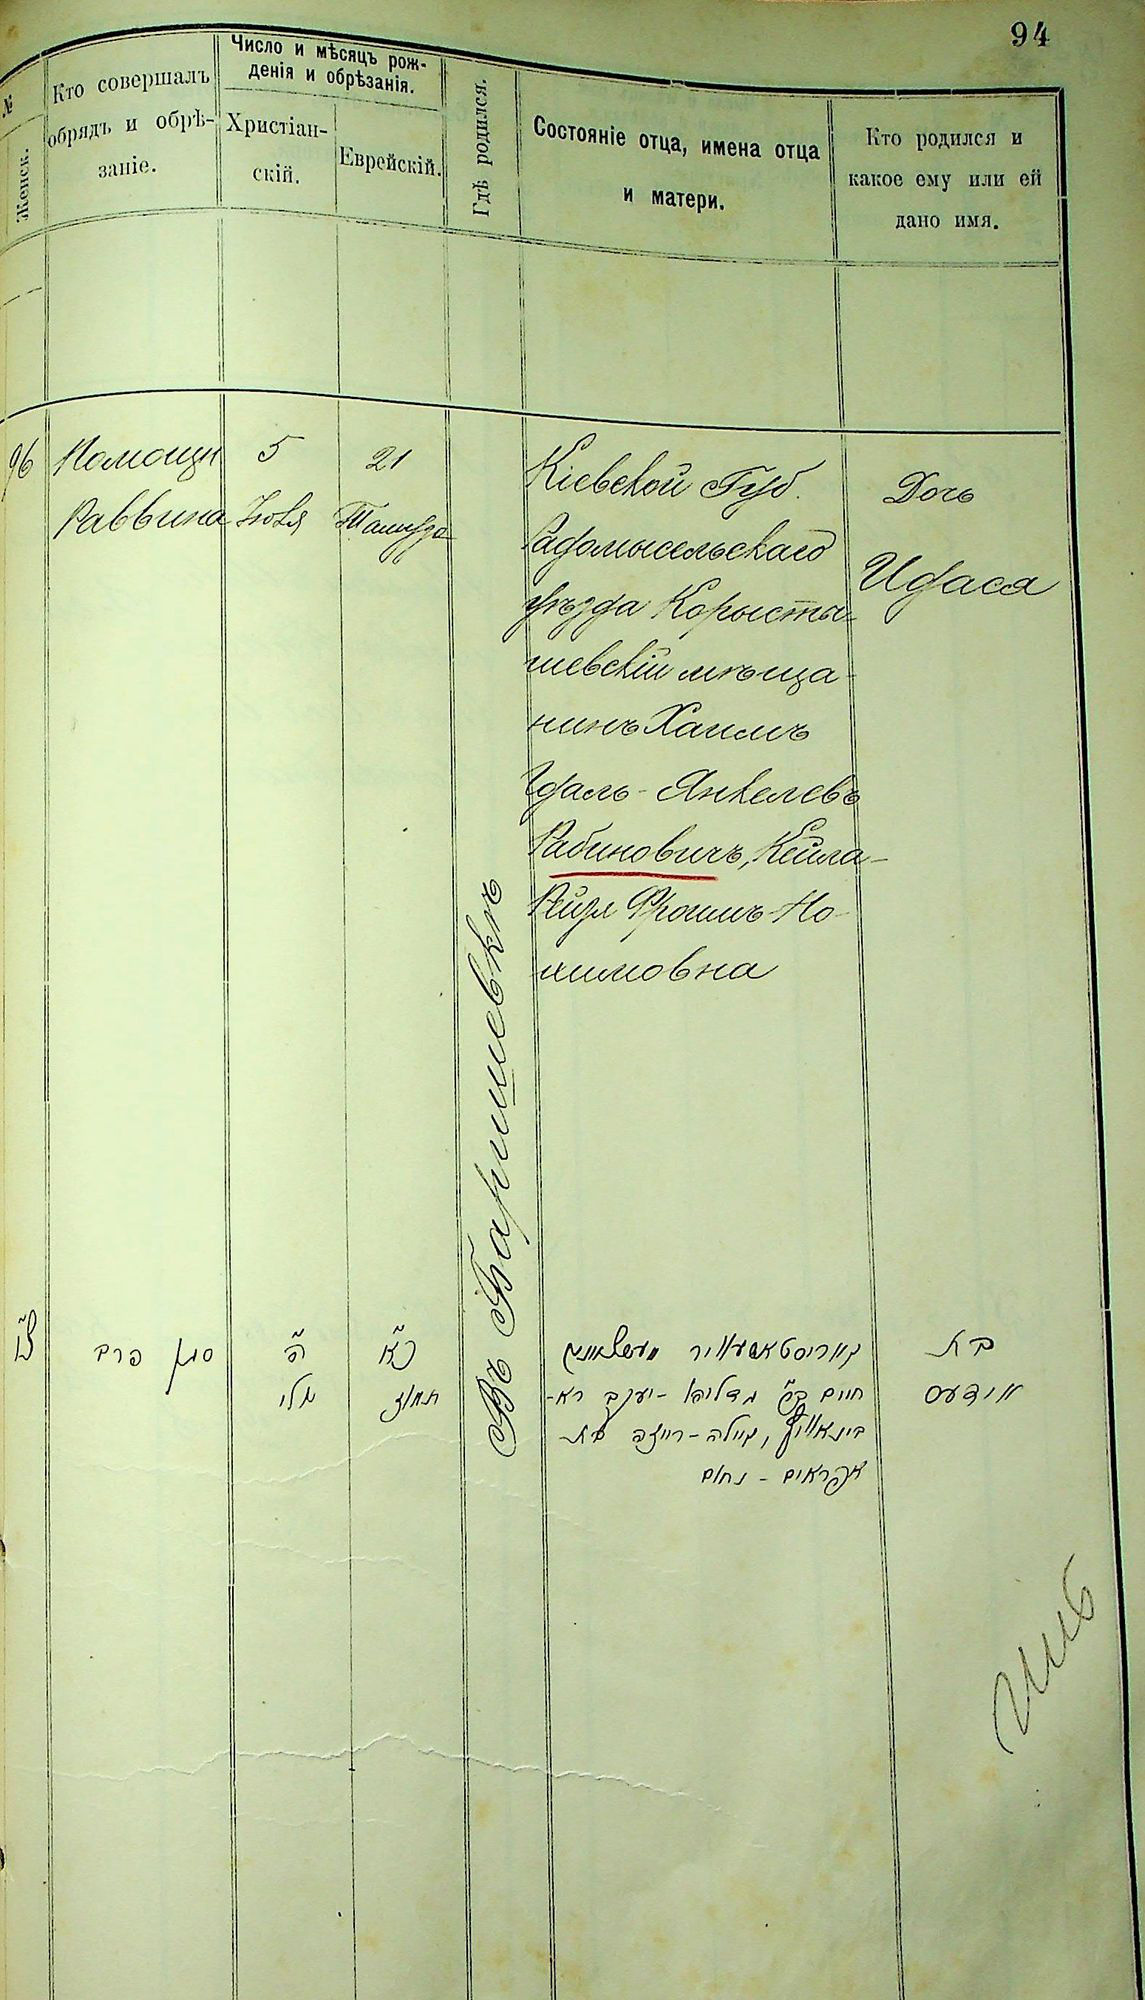 94
№
Женск.
Кто совершалъ
обрядъ и обрѣ-
заніе.
Число и мѣсяцъ рож-
денія и обрѣзанія.
Христіан-
скій.
Еврейскій.
Гдѣ родился.
Состояніе отца, имена отца
и матери.
Кто родился и
какое ему или ей
дано имя.
96
Помощн
Раввина
5
Іюля
21
Тамуза
Въ Барышевкѣ
Кіевской Губ.
Радомысельскаго
уѣзда Коросты-
шевскій мѣща-
нинъ Хаимъ
Гдаль-Янкелевъ
Рабиновичъ, Кейла-
Рейзя Фроимъ-Но-
химовна
Дочь
Идася
סגן הרב
ה
יולי
כא
תמוז
חיים
יעקב רא-
בינאוויץ, קיילה-רייזה בת
אפראים-נחום
בת